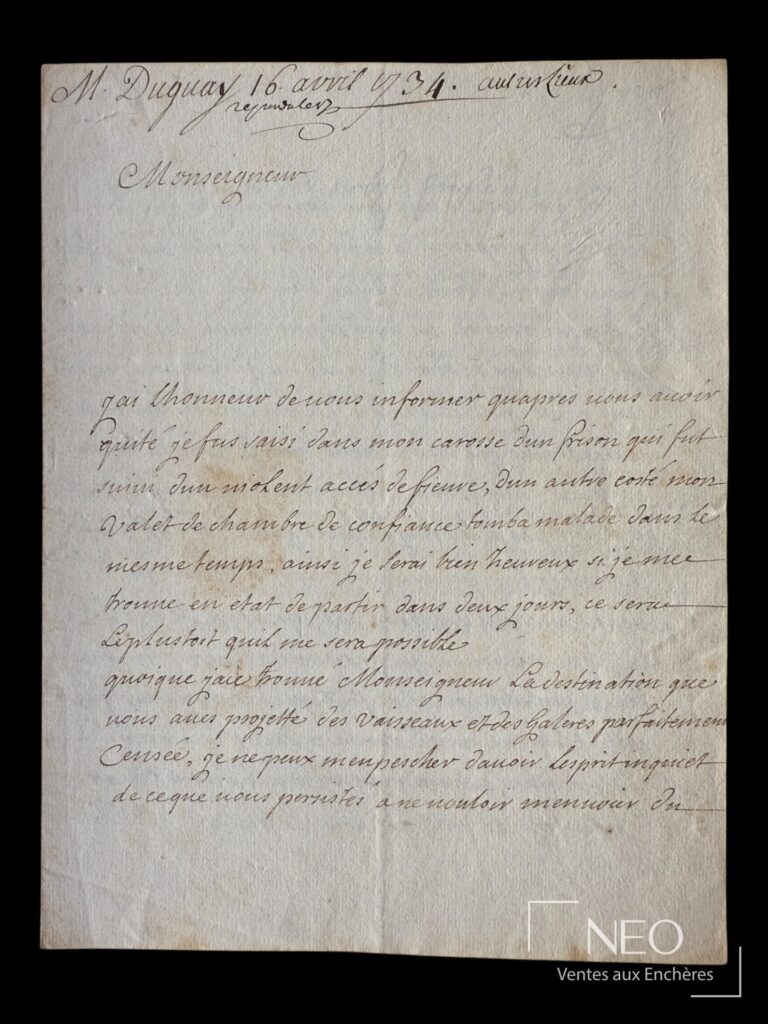 M. Duguay 16. avril 1734.
Monseigneur
jai Lhonneur de vous informer quapres vous avoir
quité je fus saisi dans mon carosse dun frison qui fut
suivi dun violent accés de fievre, dun autre costé mon
Valet de chambre de confiance tomba malade dans le
mesme temps, ainsi je serai bien heureux si je me
trouve en etat de partir dans deux jours, ce sera
Leplustost quil me sera possible
quoique jaie trouvé Monseigneur La destination que
vous avés projetté des vaisseaux et des Galeres parfaitement
Censée, je ne peux mempescher davoir Lesprit inquiet
de ce que vous persistés a ne vouloir menvoier du
NEO
Ventes aux Enchères